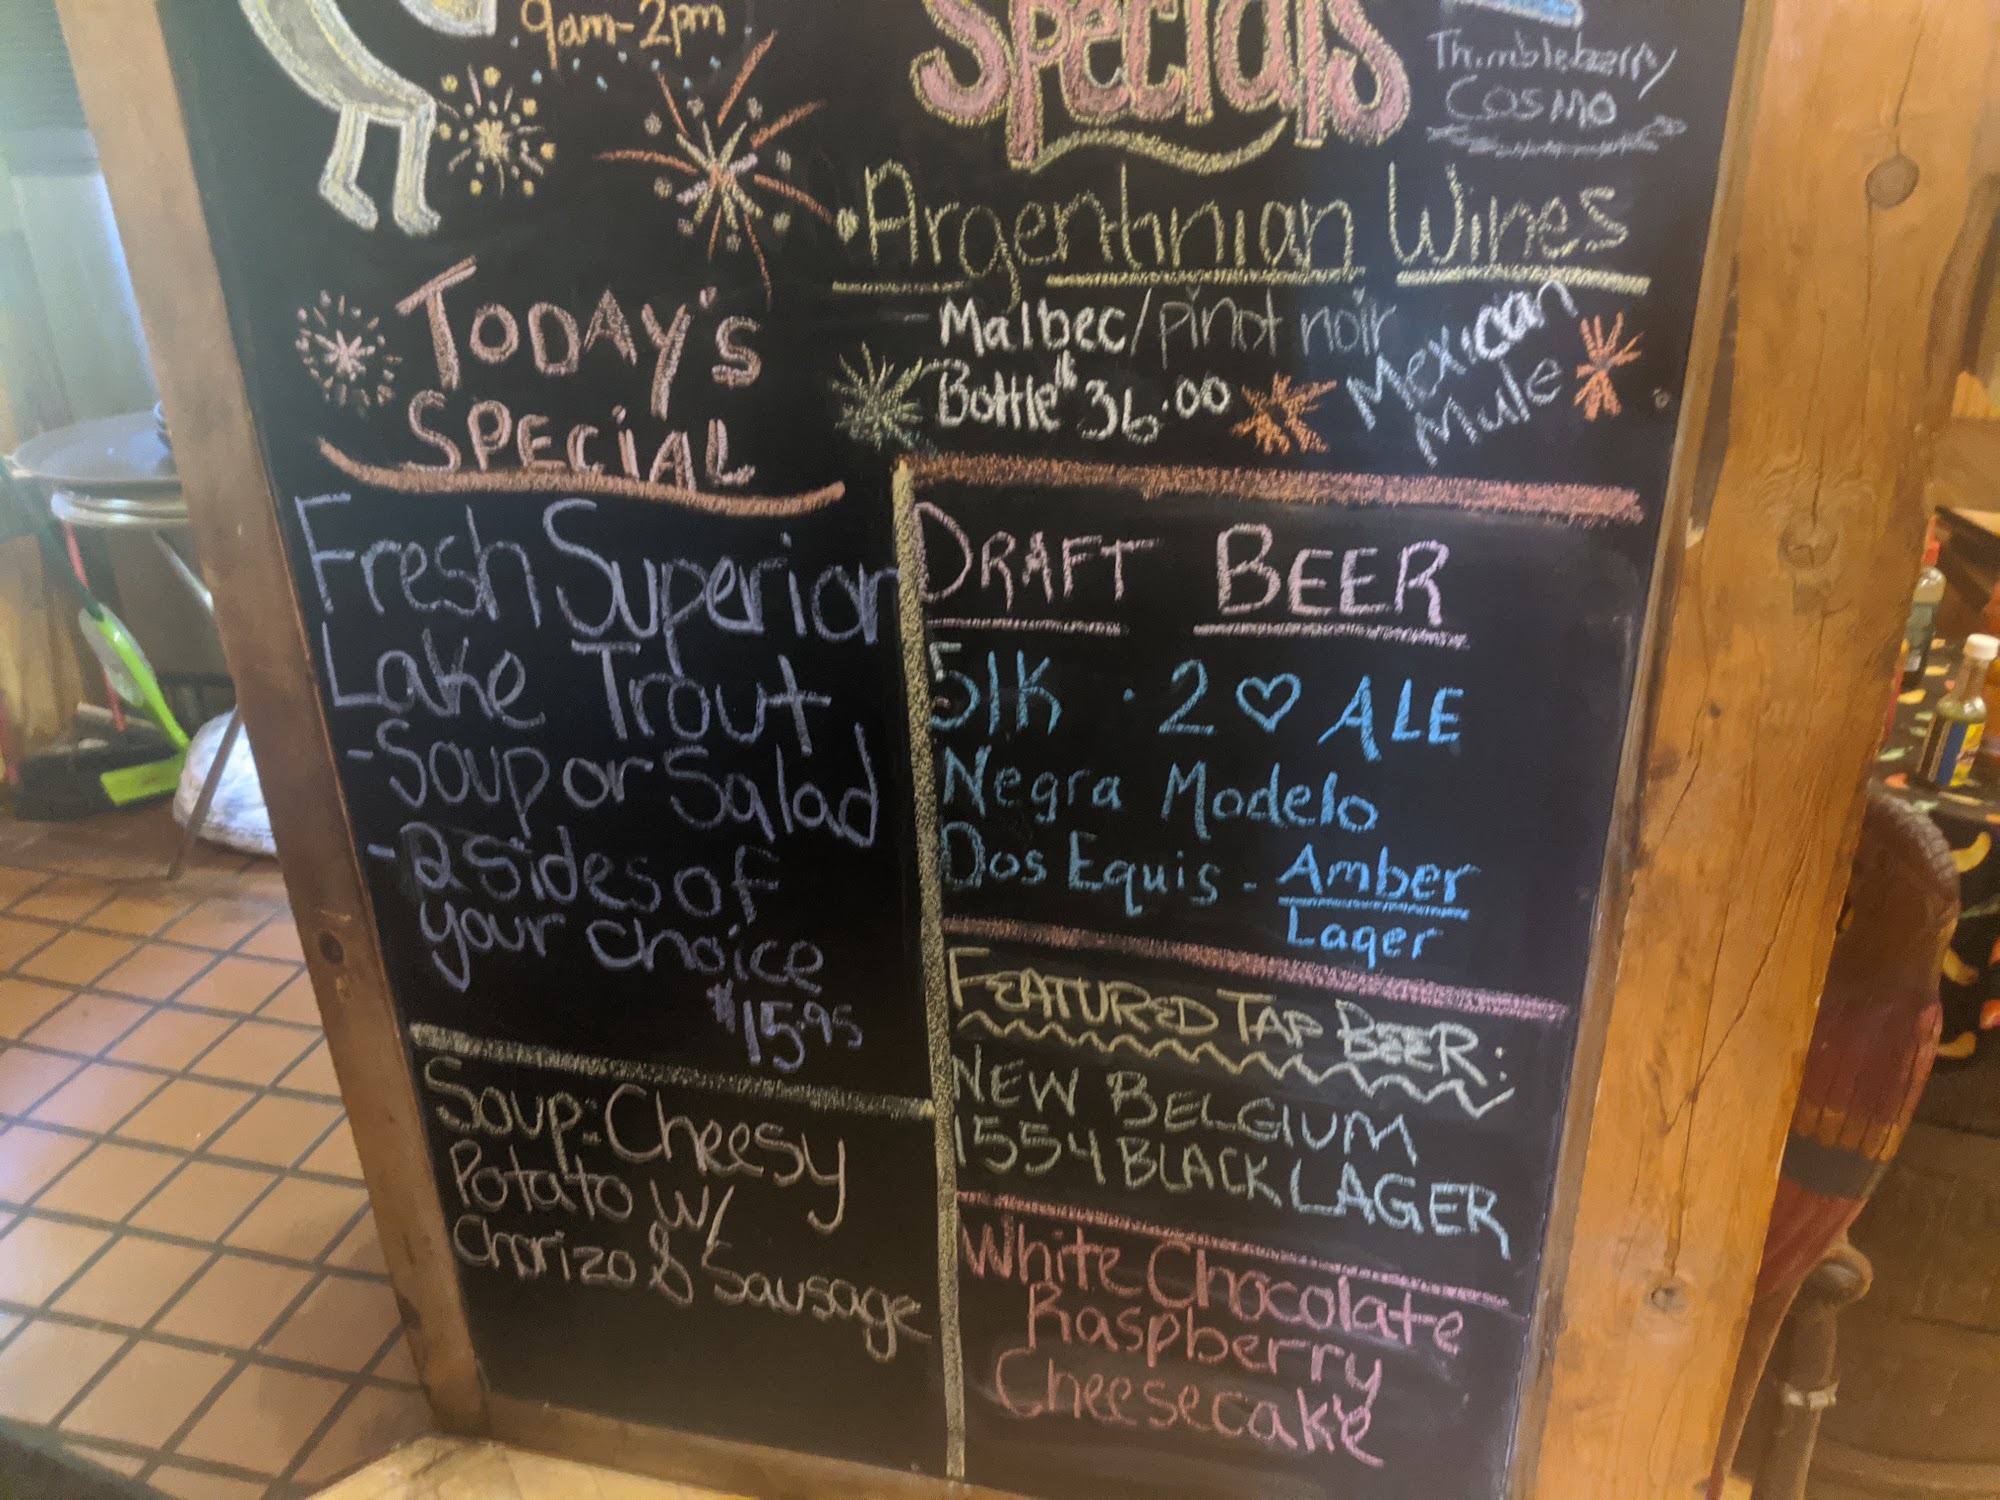 9am-2pm
Specials
Thimbleberry
Cosmo
• Argentinian Wines
- Malbec/pinot noir
Bottle $36.00
Mexican
Mule
TODAY'S
SPECIAL
Fresh Superior
Lake Trout
- Soup or Salad
- 2 sides of
your choice
$15.95
Soup: Cheesy
Potato w/
Chorizo & Sausage
DRAFT BEER
51K · 2 ♡ ALE
Negra Modelo
Dos Equis - Amber
Lager
FEATURED TAP BEER:
NEW BELGIUM
1554 BLACK LAGER
White Chocolate
Raspberry
Cheesecake